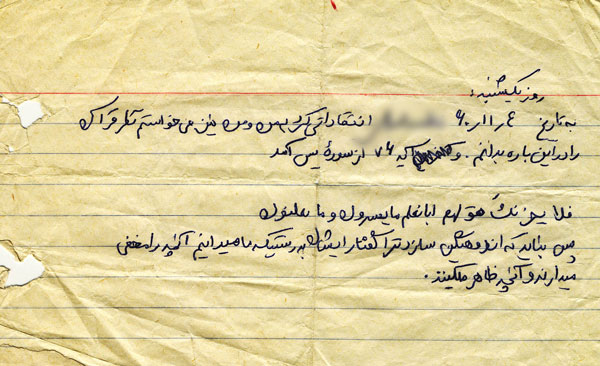 روز یکشنبه:
به تاریخ ۴ر۱۱ر۶۰ انتقاداتی کرد به من و من نیز می‌خواستم نظر قرآن
را در این باره بدانم. و آیه ۷۶ از سورهٔ یس آمد
فلا یحزنک قولهم انا نعلم ما یسرون و ما یعلنون
پس نباید که اندوهگین سازد ترا گفتار ایشان بدرستیکه ما میدانیم آنچه را مخفی
میدارند و آنچه ظاهر میکنند.